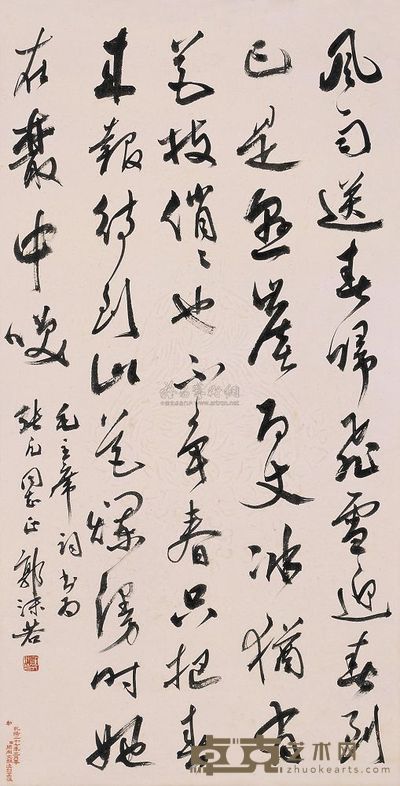 風雨送春歸飛雪迎春到
已是懸崖百丈冰猶有
花枝俏〻也不爭春只把春
來報待到山花爛漫時她
在叢中笑
毛主席詞書為
凡同志正 郭沫若
艺术网
zhuokearts.com